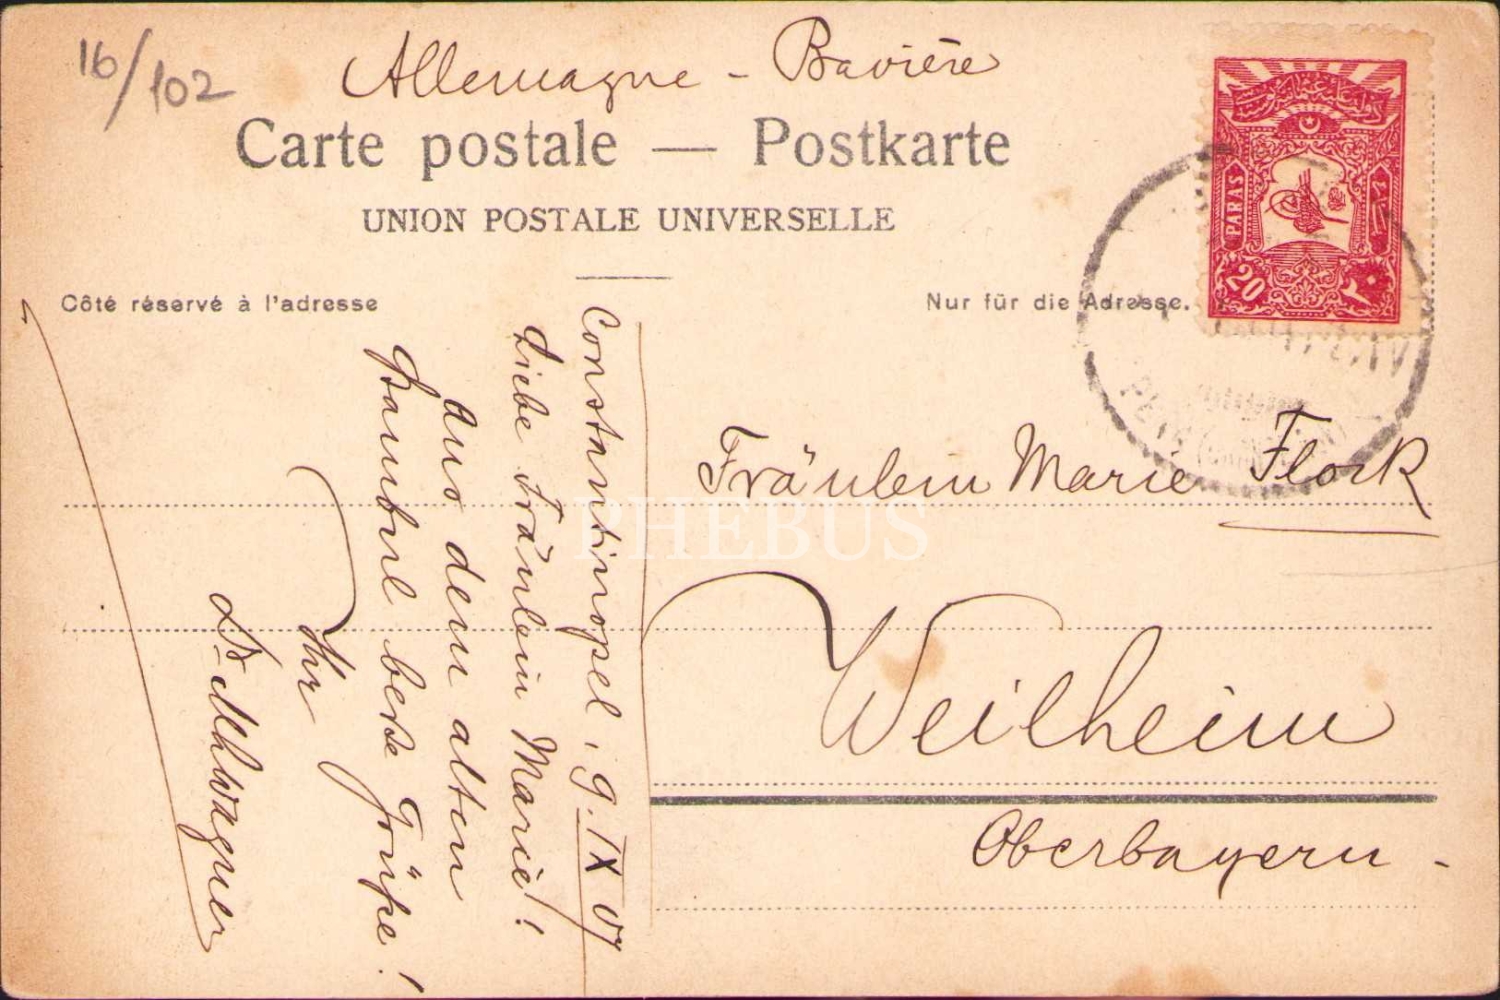 16/102
Allemagne - Bavière
Carte postale — Postkarte
UNION POSTALE UNIVERSELLE
Côté réservé à l'adresse
Nur für die Adresse.
PARAS
20
٢٠
Fräulein Marie Flock
Weilheim
Oberbayern -
Constantinopel, 9. IX 07
Liebe Fräulein Marie!
aus dem alten
Stambul beste Grüße!
Ihr
Dr
PHEBUS